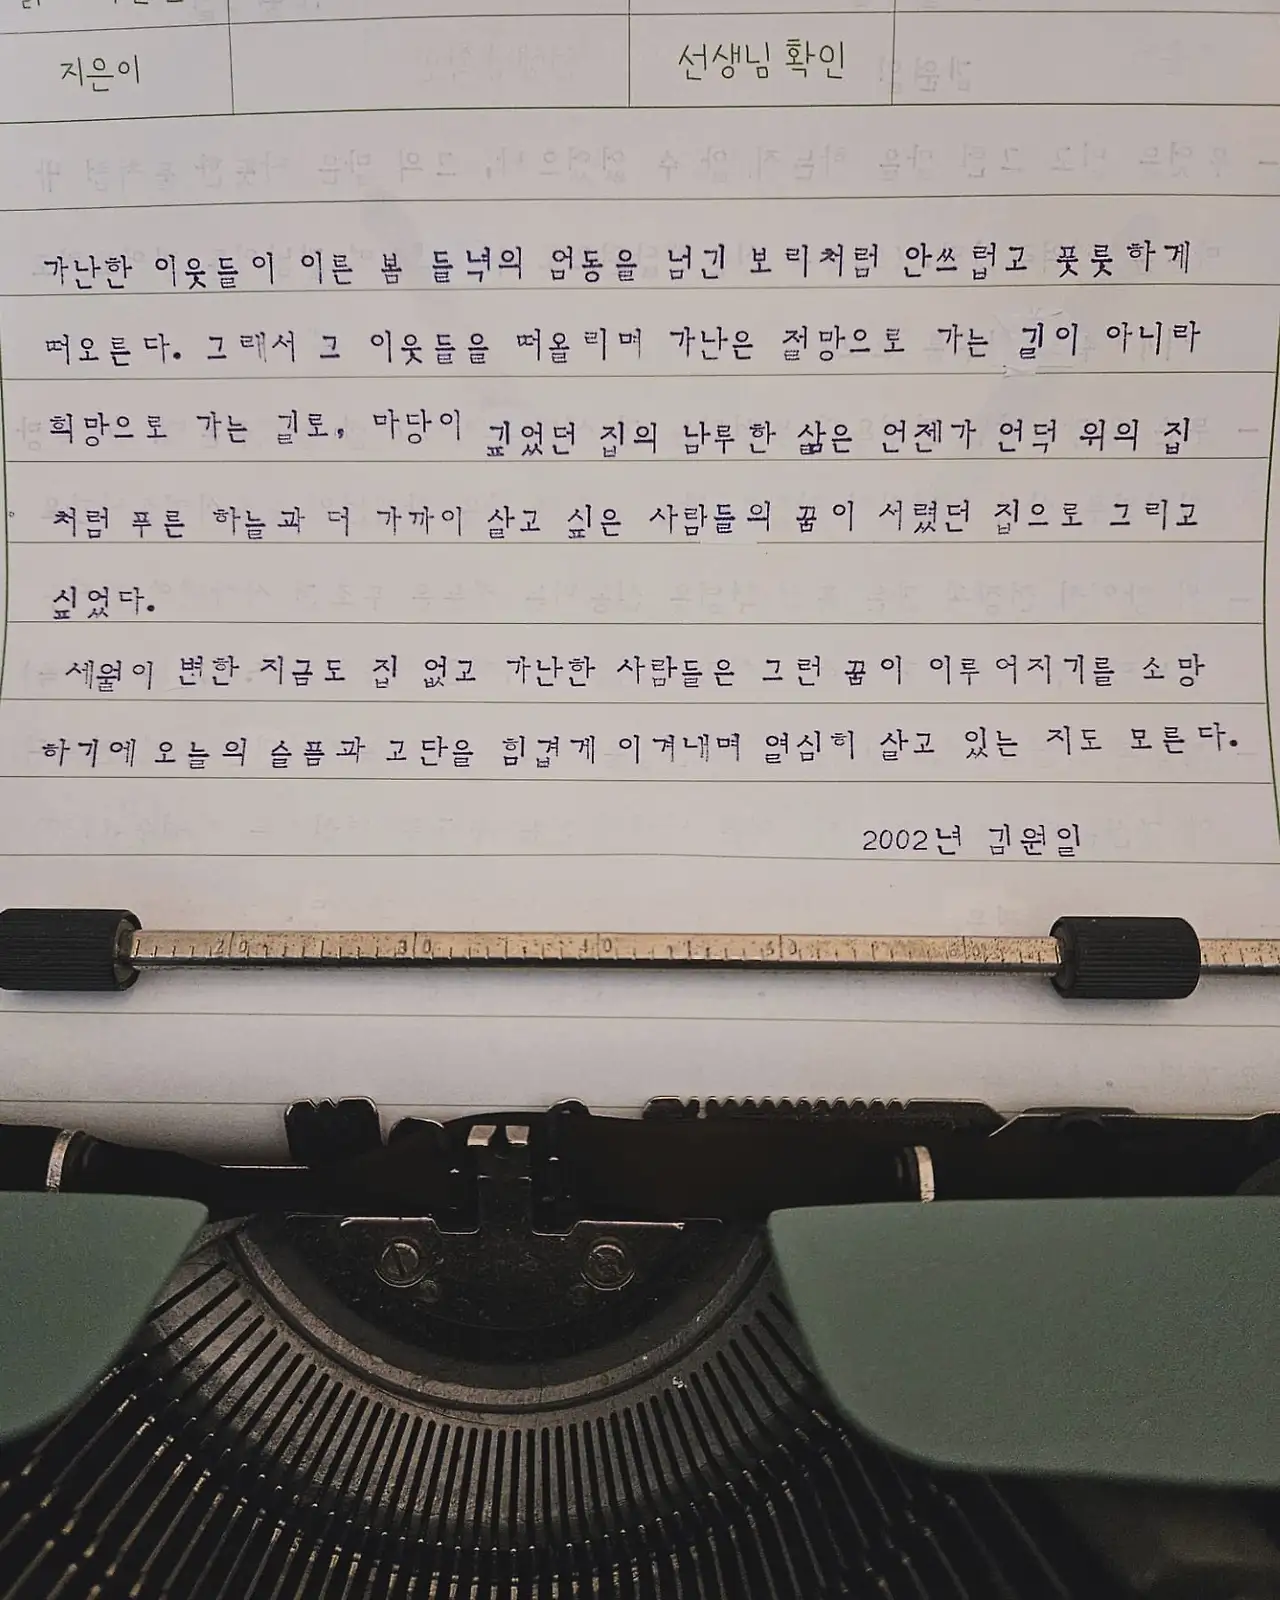 지은이 선생님 확인
가난한 이웃들이 이른 봄 들녘의 엄동을 넘긴 보리처럼 안쓰럽고 풋풋하게
떠오른다. 그래서 그 이웃들을 떠올리며 가난은 절망으로 가는 길이 아니라
희망으로 가는 길로, 마당이 깊었던 집의 남루한 삶은 언젠가 언덕 위의 집
처럼 푸른 하늘과 더 가까이 살고 싶은 사람들의 꿈이 서렸던 집으로 그리고
싶었다.
세월이 변한 지금도 집 없고 가난한 사람들은 그런 꿈이 이루어지기를 소망
하기에 오늘의 슬픔과 고단을 힘겹게 이겨내며 열심히 살고 있는 지도 모른다.
2002년 김원일
20 30 40 50 60